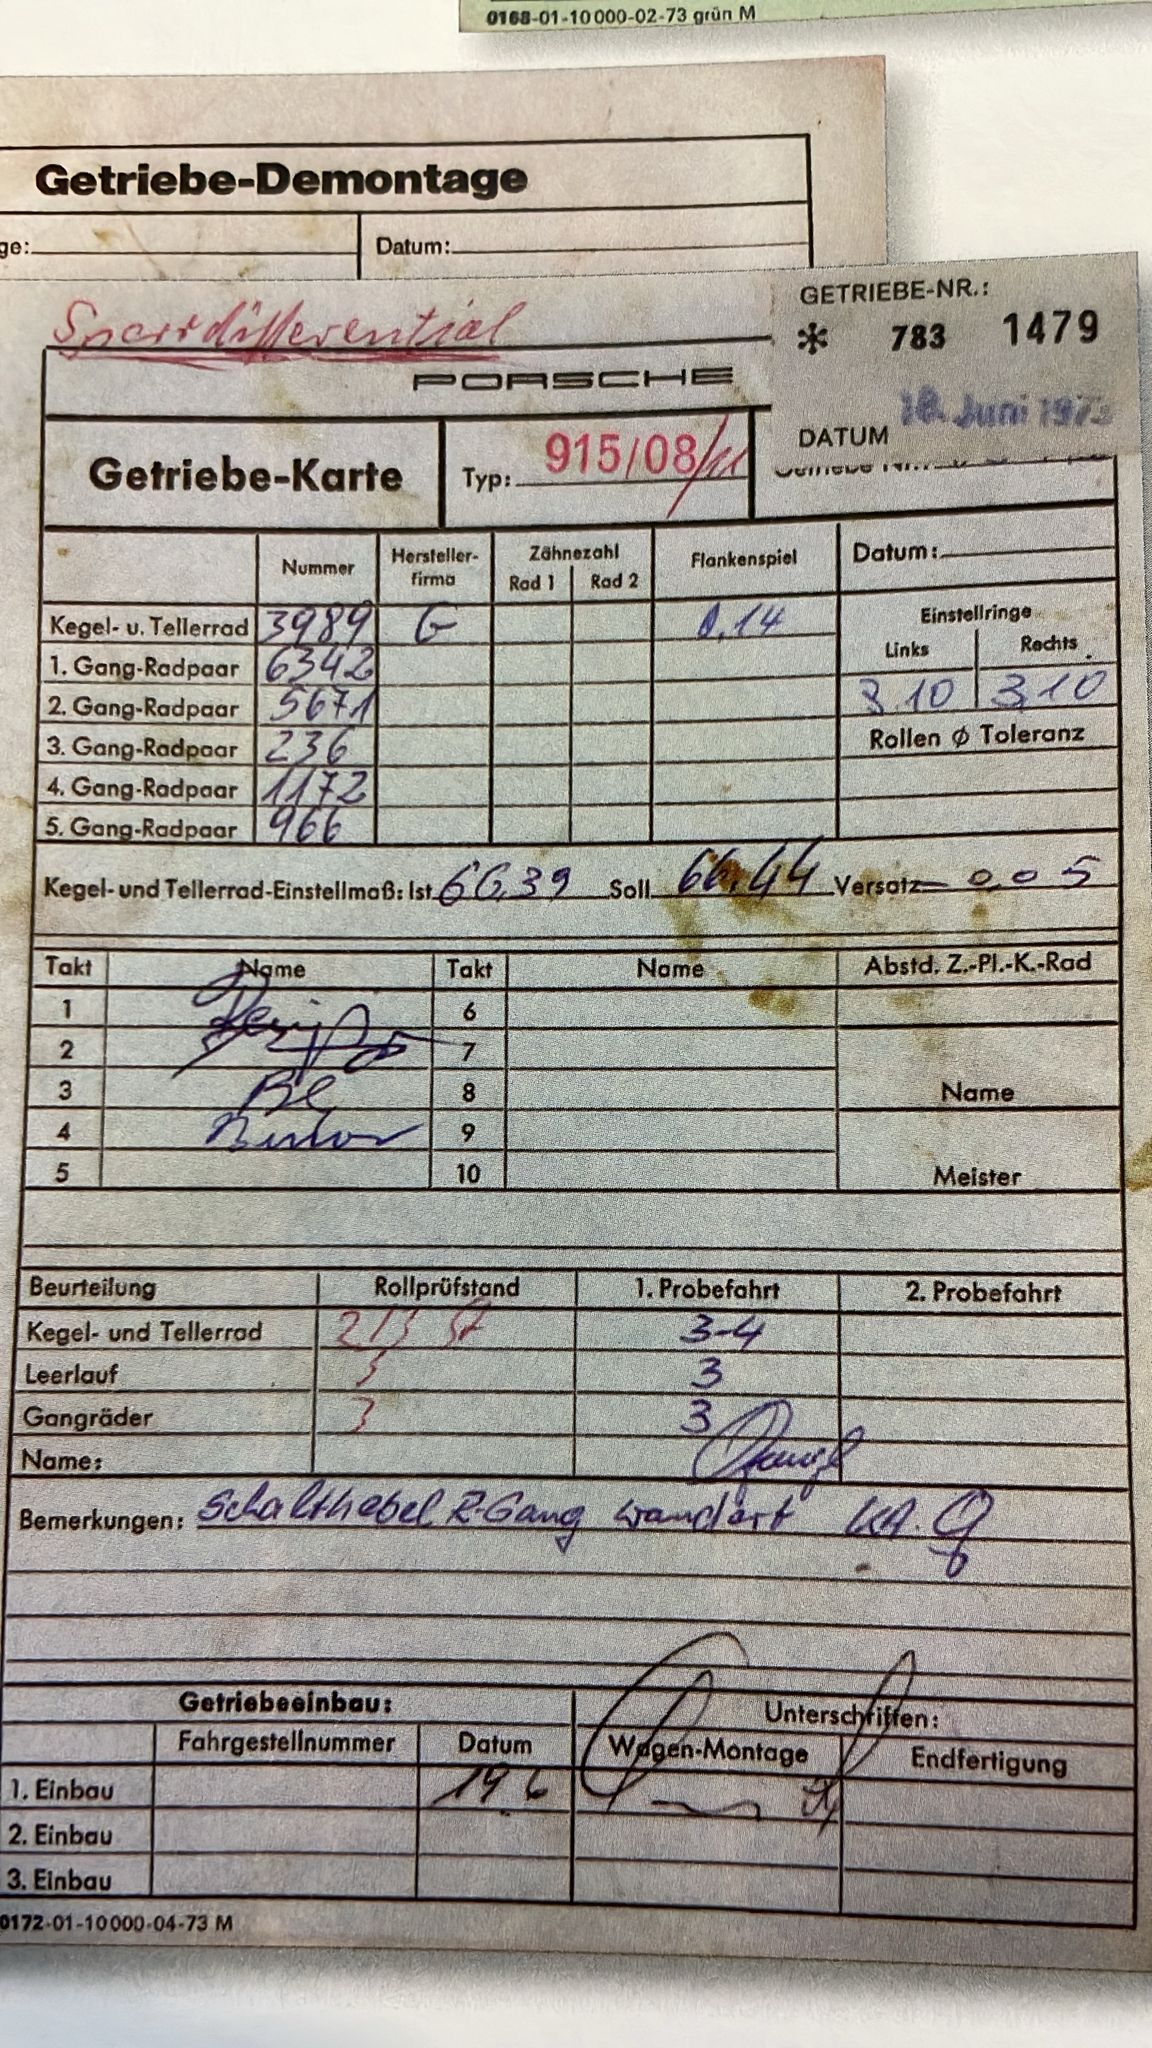 0168-01-10 000-02-73 grün M
Getriebe-Demontage
ge: Datum:
Sperrdifferential
GETRIEBE-NR.:
* 783 1479
PORSCHE
DATUM 18. Juni 1973
Getriebe-Karte Typ: 915/08/11
Nummer Hersteller-firma Zähnezahl Rad 1 Rad 2 Flankenspiel Datum:
Kegel- u. Tellerrad 3989 G 0.14 Einstellringe
1. Gang-Radpaar 6342 Links Rechts
2. Gang-Radpaar 5671 3.10 3.10
3. Gang-Radpaar 236 Rollen ∅ Toleranz
4. Gang-Radpaar 1172
5. Gang-Radpaar 966
Kegel- und Tellerrad-Einstellmaß: Ist 66,39 Soll 66.44 Versatz 0,05
Takt Name Takt Name Abstd. Z.-Pl.-K.-Rad
1 6
2 7
3 8 Name
4 9
5 10 Meister
Beurteilung Rollprüfstand 1. Probefahrt 2. Probefahrt
Kegel- und Tellerrad 3-4
Leerlauf 3
Gangräder 3 3
Name:
Bemerkungen: Schalthebel R-Gang wandert
Getriebeeinbau: Unterschriften:
Fahrgestellnummer Datum Wagen-Montage Endfertigung
1. Einbau 19 6
2. Einbau
3. Einbau
0172-01-10 000-04-73 M